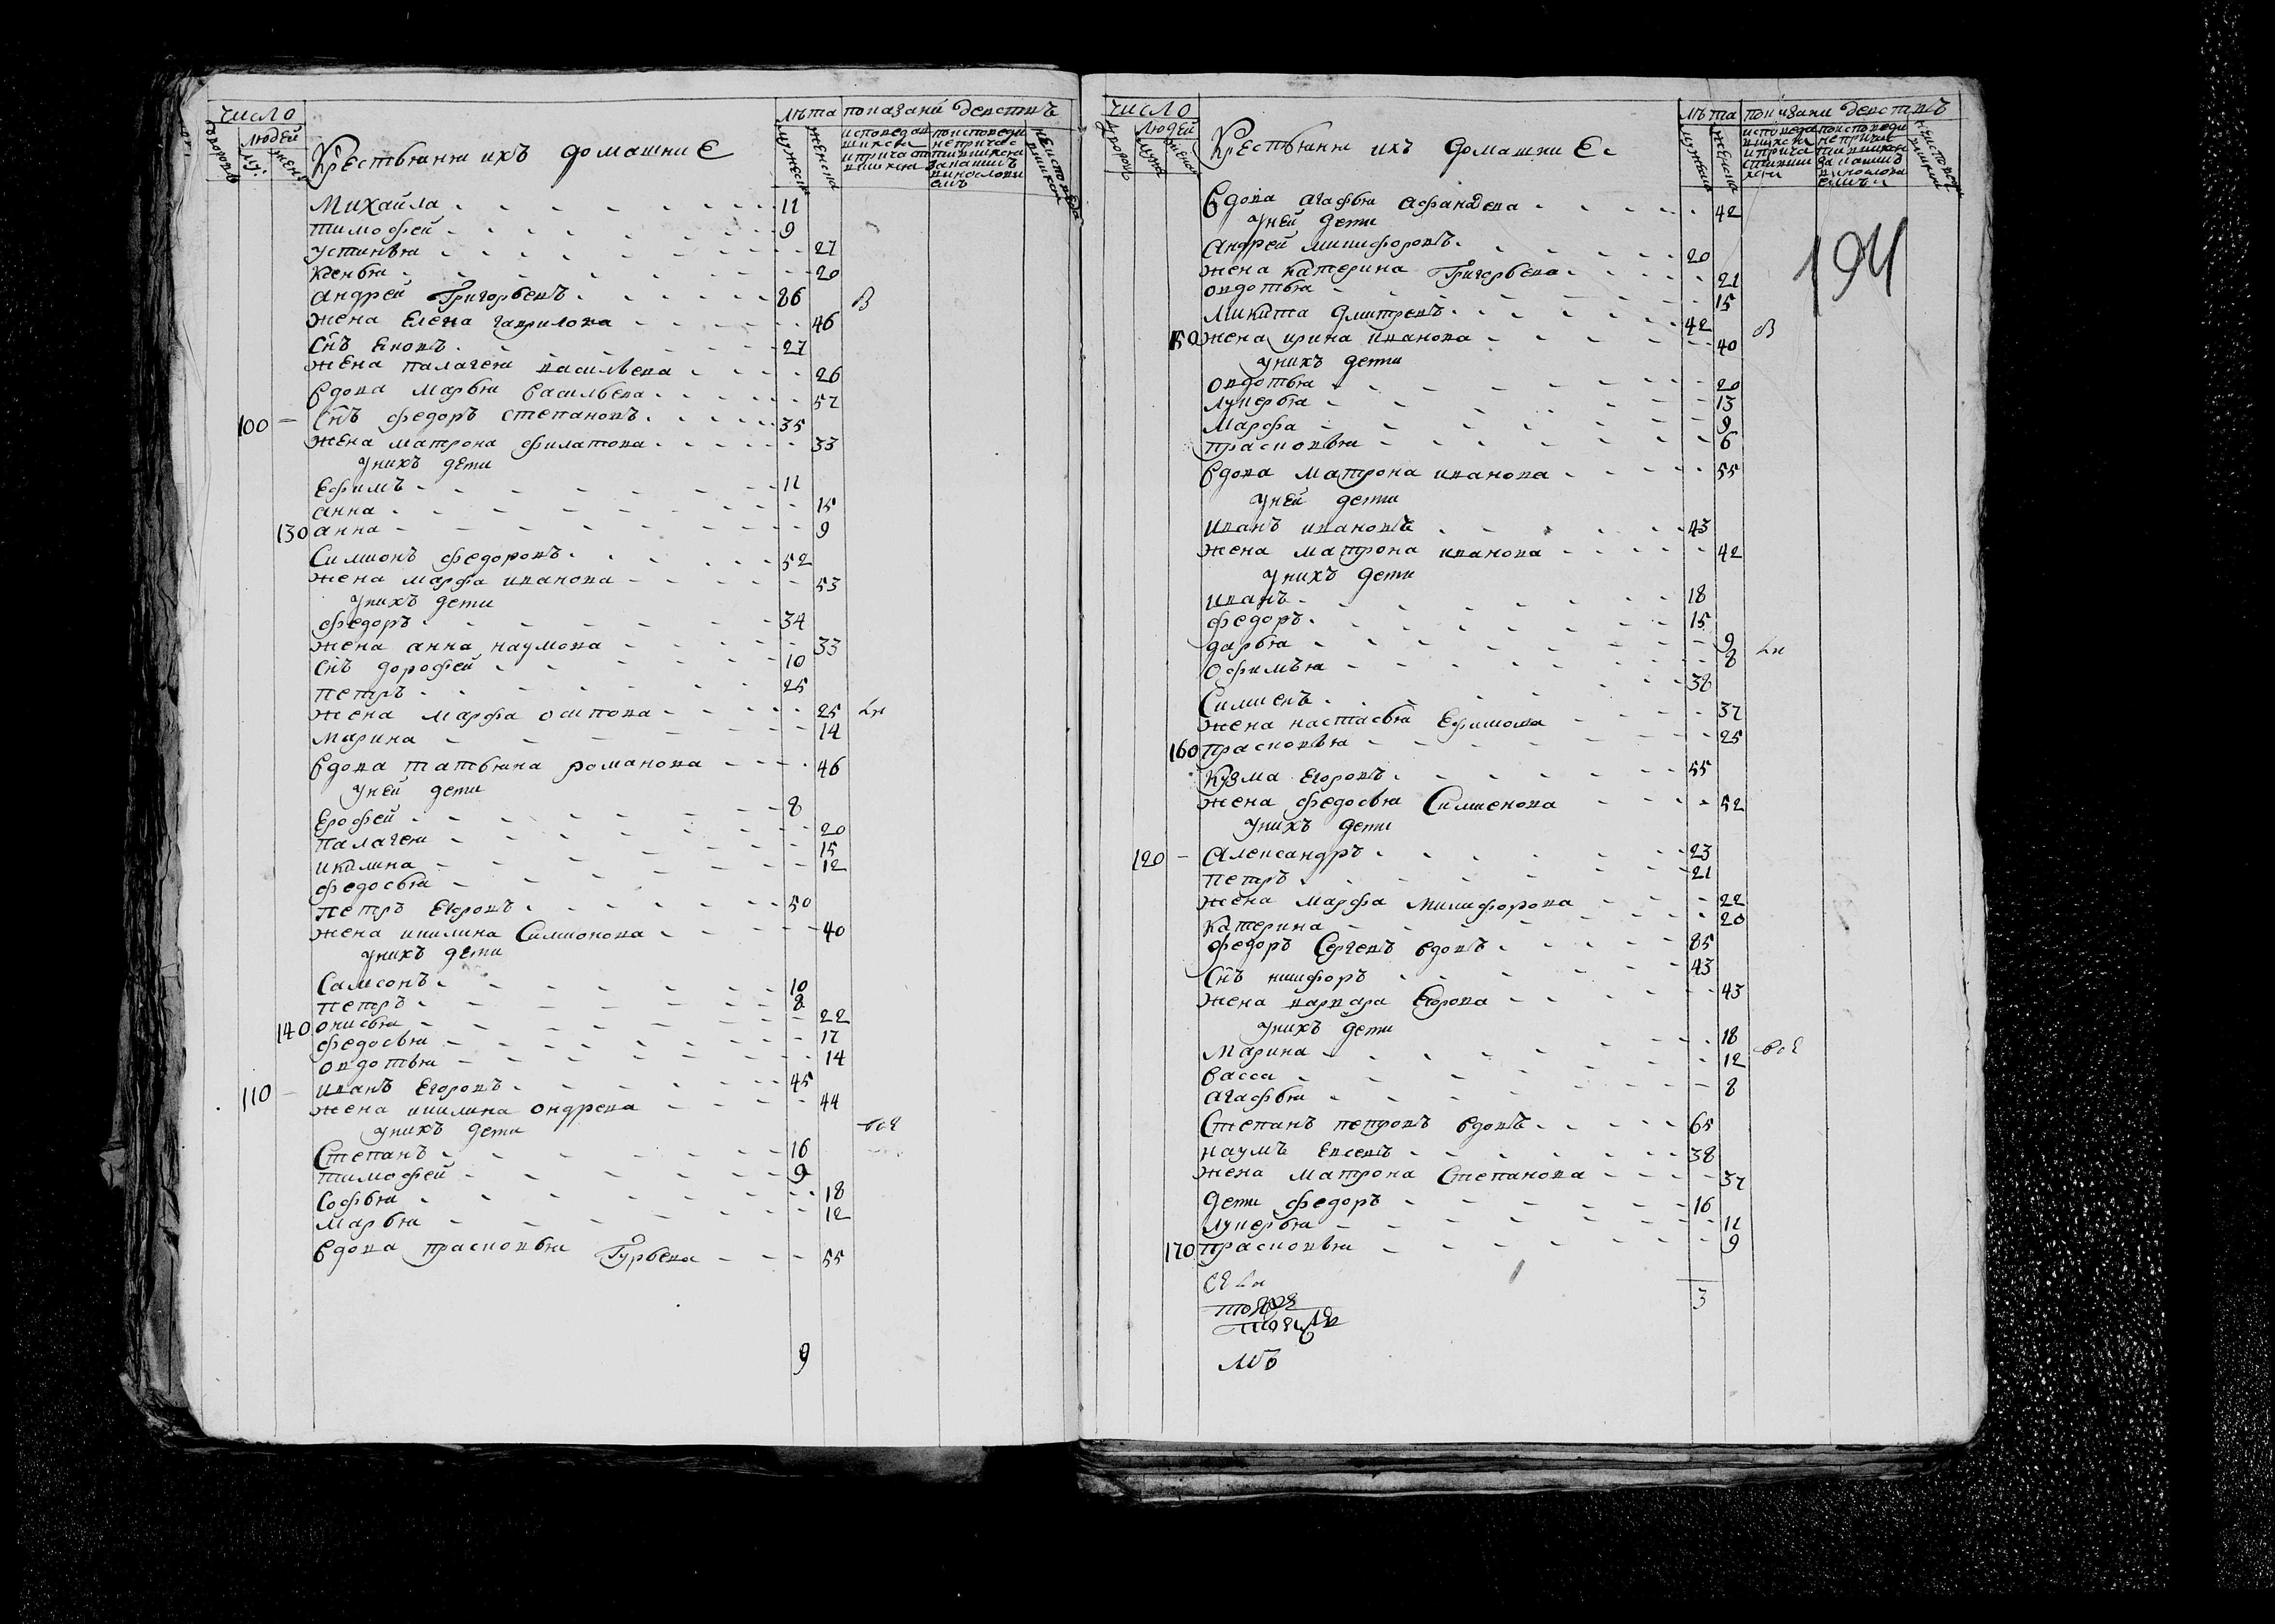 число
дворовъ
людей
му:
женъ
Крестьяня ихъ домашние
лѣта
мужеска
женска
показани действъ
Михайла 11
тимофей 9
устинья 27
ксенья 20
андрей Григорьевъ 86
жена Елена гаврилова 46
Снъ Яковъ 27
жена палагея васильева 26
вдова Марья васильева 57
100 Снъ федоръ степановъ 35
жена матрона филатова 33
унихъ дети
ефимъ 11
анна 15
130 анна 9
Симионъ федоровъ 52
жена марфа иванова 53
унихъ дети
федоръ 34
жена анна наумова 33
снъ дорофей 10
петръ 25
жена марфа осипова 25
марина 14
вдова татьяна романова 46
уней дети
Ерофей 8
палагея 20
икилина 15
федосья 12
петръ Егоровъ 50
жена икилина Симионова 40
унихъ дети
Самсонъ 10
петръ 8
140 онисья 22
федосья 17
овдотья 14
110 иванъ Егоровъ 45
жена икилина ондрева 44
унихъ дети
Степанъ 16
тимофей 9
Софья 18
марья 12
вдова прасковья Гурьева 55
9
число
дворовъ
людей
Крестьяня ихъ домашние
лѣта
мужеска
женска
показани действъ
194
вдова агафья афанасева 42
уней дети
андрей микифоровъ 20
жена катерина Григорьева 21
овдотья 15
Микита дмитревъ 42
150 жена ирина иванова 40
унихъ дети
овдотья 20
лукерья 13
марфа 9
прасковья 6
вдова матрона иванова 55
уней дети
иванъ ивановъ 43
жена матрона иванова 42
унихъ дети
иванъ 18
федоръ 15
дарья 9
Офимья 8
Симиенъ 38
жена настасья Ефимова 37
160 прасковья 25
Кузма Егоровъ 55
жена федосья Симиенова 52
унихъ дети
120 Александръ 23
петръ 21
жена марфа микифорова 22
катерина 20
федоръ Сергевъ вдовъ 85
Снъ никифоръ 43
жена варвара Егорова 43
унихъ дети
Марина 18
васса 12
агафья 8
Степанъ петровъ вдовъ 65
наумъ Евсевъ 38
жена матрона Степанова 37
дети федоръ 16
лукерья 11
170 прасковья 9
3